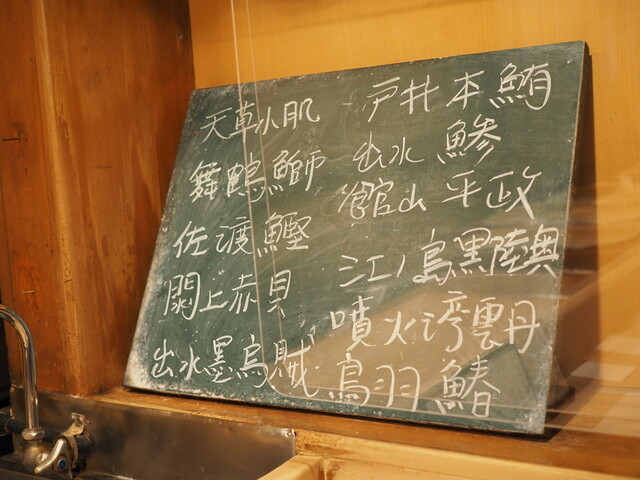 天草小肌
舞鶴鰤
佐渡鰹
閖上赤貝
出水墨烏賊
戸井本鮪
出水鯵
館山平政
江ノ島黒陸奥
噴火湾雲丹
鳥羽鰆